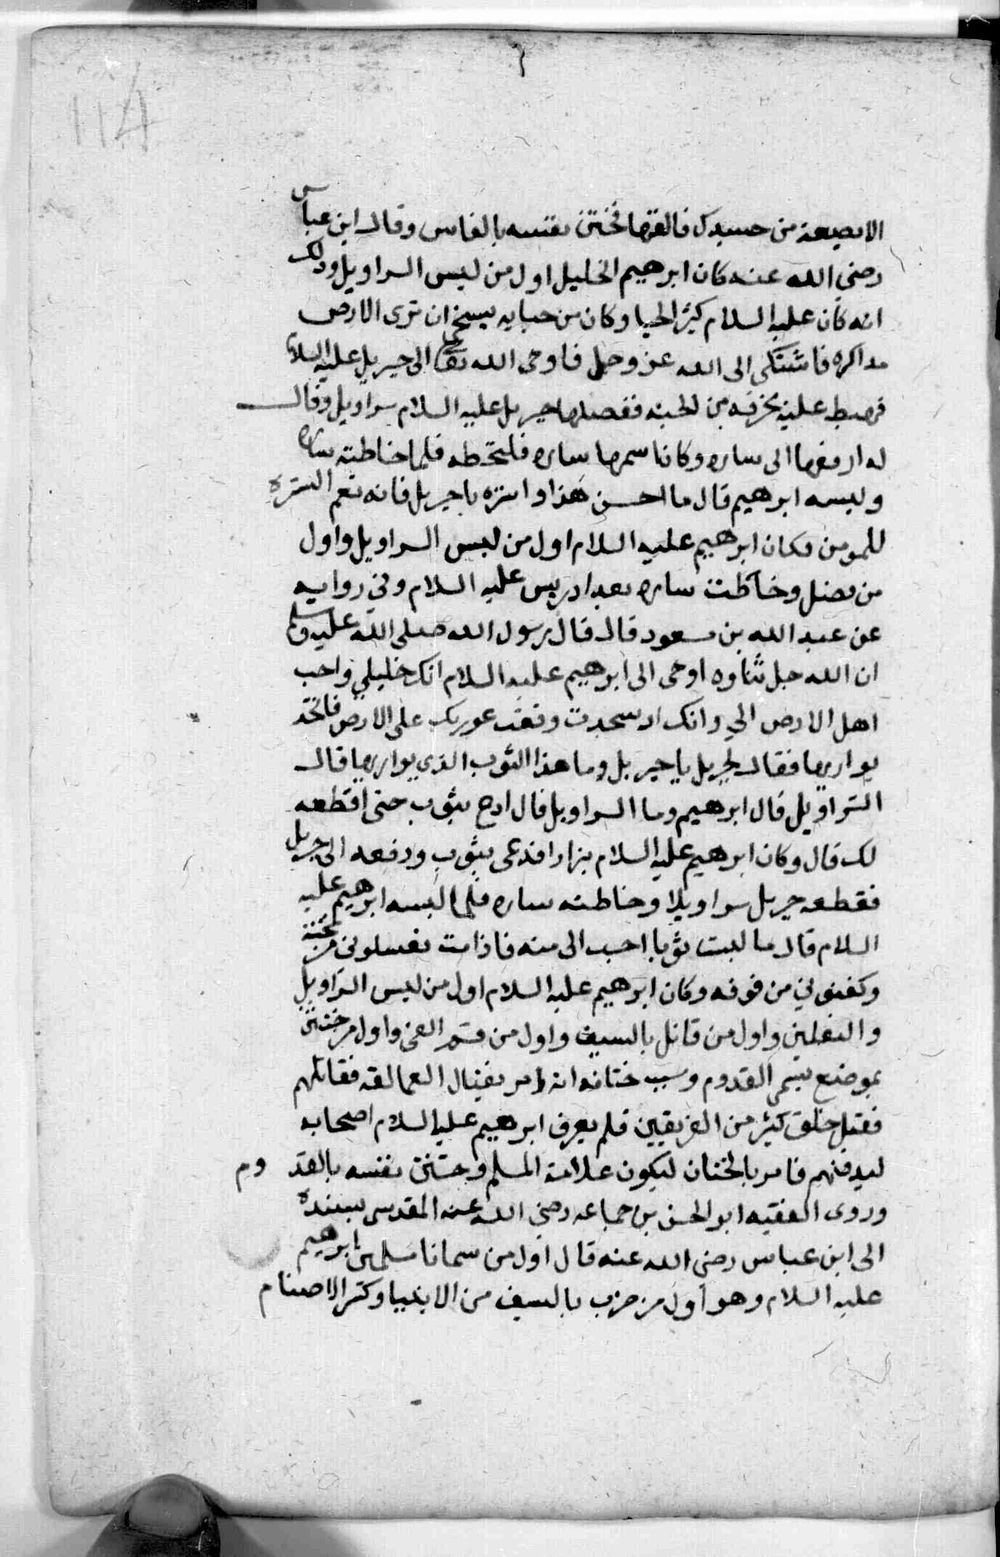 114
الا بضعة من جسدك فالقها فختتن نفسه بالفاس وقال ابن عباس
رضي الله عنه كان ابرهيم الخليل اول من لبس السراويل وذلك
انه كان عليه السلام كثير الحيا وكان من حيايه يستحي ان ترى الارض
مذاكره فاشتكى الى الله عز وجل فاوحى الله تعالى الى جبريل عليه السلام
فهبط عليه بخرقه من الجنه ففصلها جبريل عليه السلام سراويل وقال
له ادفعها الى ساره وكان اسمها ساره فلتخطه فلما خاطته ساره
ولبسه ابرهيم قال ما احسن هذا واستره يا جبريل فانه نعم السترة
للمومن فكان ابرهيم عليه السلام اول من لبس السراويل واول
من فصل وخاطت ساره بعد ادريس عليه السلام وفي روايه
عن عبد الله بن مسعود قال قال رسول الله صلى الله عليه وسلم
ان الله جل ثناوه اوحى الى ابرهيم عليه السلام انك خليلي واحب
اهل الارض الي وانك اد سجدت وقعت عورتك على الارض فاتخذ
يواريها فقال لجبريل يا جبريل وما هذا الثوب الذي يواريها قال
السراويل قال ابرهيم وما السراويل قال ادع بثوب حتى اقطعه
لك قال وكان ابرهيم عليه السلام بزازا فدعى بثوب ودفعه الى جبريل
فقطعه جبريل سراويلا وخاطته ساره فلما لبسه ابرهيم عليه
السلام قال ما لبست ثوبا احب الى منه فاذا مت فغسلوني من تحته
وكفنوني من فوقه وكان ابرهيم عليه السلام اول من لبس السراويل
والنعلين واول من قاتل بالسيف واول من قسم الفي واول من ختتن
بموضع يسمى القدوم وسبب ختانه انه امر بقتال العمالقه فقاتلهم
فقتل خلق كثير من الفريقين فلم يعرف ابرهيم عليه السلام اصحابه
ليدفنهم فامر بالختان ليكون علامة المسلم وختتن نفسه بالقدوم
وروى الفقيه ابو الحسن بن جماعه رضي الله عنه المقدسي بسنده
الى ابن عباس رضي الله عنه قال اول من سمانا مسلمين ابرهيم
عليه السلام وهو أول من ضرب بالسيف من الانبيا وكسر الاصنام